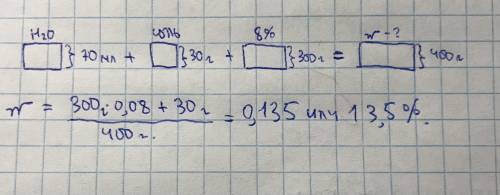 H2O соль 8% w - ?
} 70 мл + } 30 г + } 300 г = } 400 г
w = 300 г · 0,08 + 30 г / 400 г. = 0,135 или 13,5%.